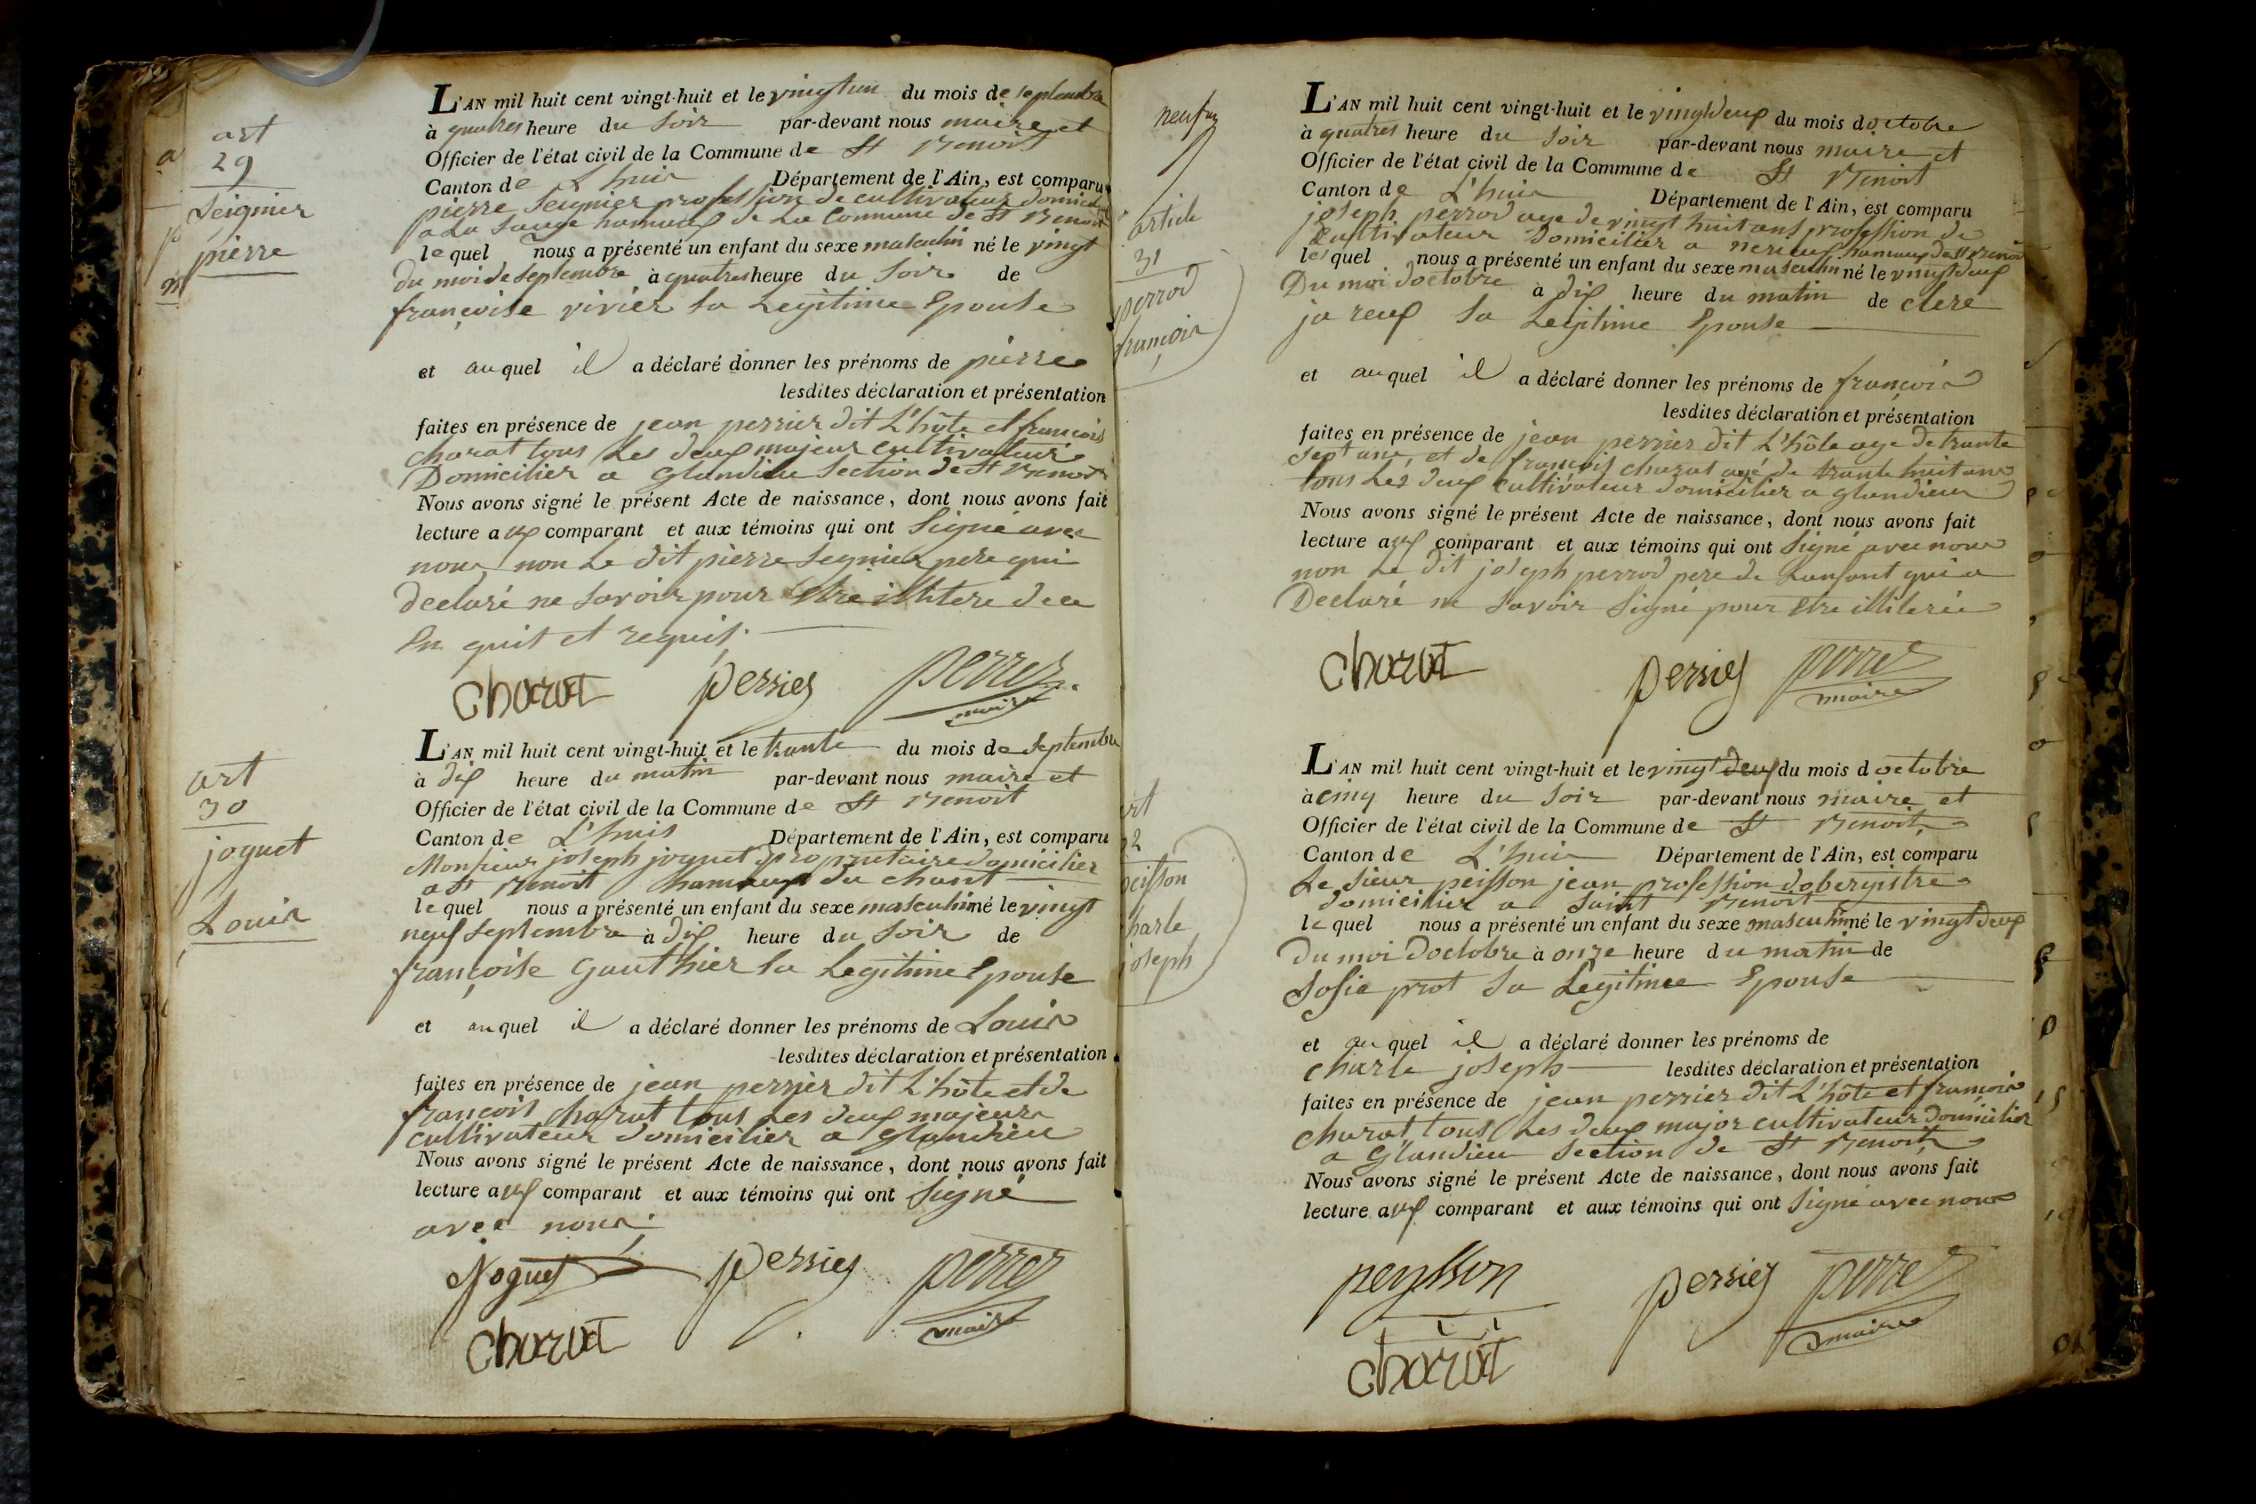 art
29
Seignier
pierre
L'AN mil huit cent vingt-huit et le vingt un du mois de septembre
à quatres heure du soir par-devant nous maire et
Officier de l'état civil de la Commune de St Benoit
Canton de L'huis Département de l'Ain, est comparu
pierre Seignier profession de cultivateur domicilié
a La Sauge hameaux de La Commune de St Benoit
lequel nous a présenté un enfant du sexe masculin né le vingt
du moi de septembre à quatres heure du soir de
françoise vivier sa Legitime Epouse
et auquel il a déclaré donner les prénoms de pierre
lesdites déclaration et présentation
faites en présence de jean perrier dit L'hôte et françois
charat tous Les deux majeur cultivateur
Domicilier a glandieu Section de St Benoit
Nous avons signé le présent Acte de naissance, dont nous avons fait
lecture aux comparant et aux témoins qui ont Signé avec
nous non Le dit pierre Seignier pere qui
declaré ne savoir pour Etre illitere de ce
En quit et requis.
Charat perrier perret
maire
art
30
joguet
Louis
L'AN mil huit cent vingt-huit et le trante du mois de septembre
à dix heure du matin par-devant nous maire et
Officier de l'état civil de la Commune de St Benoit
Canton de L'huis Département de l'Ain, est comparu
Monsieur joseph joguet propriétaire domicilier
a St Benoit hameaux du chant
lequel nous a présenté un enfant du sexe masculin né le vingt
neuf septembre à dix heure du soir de
françoise gauthier sa Legitime Epouse
et auquel il a déclaré donner les prénoms de Louis
lesdites déclaration et présentation
faites en présence de jean perrier dit L'hôte et de
françois charat tous Les deux majeur
cultivateur domicilier a glandieu
Nous avons signé le présent Acte de naissance, dont nous avons fait
lecture aux comparant et aux témoins qui ont Signé
avec nous.
Joguet perrier perret
maire
Charat
article
31
perrod
françois
L'AN mil huit cent vingt-huit et le vingt deux du mois doctobre
à quatres heure du soir par-devant nous maire et
Officier de l'état civil de la Commune de St Benoit
Canton de L'huis Département de l'Ain, est comparu
joseph perrod age de vingt huit ans profession de
cultivateur Domicilier a hameaux de St Benoit
lesquel nous a présenté un enfant du sexe masculin né le vingt deux
Du moi doctobre à dix heure du matin de clere
ja reux sa Legitime Epouse
et auquel il a déclaré donner les prénoms de françois
lesdites déclaration et présentation
faites en présence de jean perrier dit L'hôte age de trante
sept ans, et de françois charat agé de trante huit ans
tous Les deux cultivateur domicilier a glandieu
Nous avons signé le présent Acte de naissance, dont nous avons fait
lecture aux comparant et aux témoins qui ont Signé avec nous
non Le dit joseph perrod pere de Lanfant qui a
Declaré ne savoir Signé pour Etre illiterée
Charat perrier perret
maire
art
32
peisson
charle
joseph
L'AN mil huit cent vingt-huit et le vingt deux du mois doctobre
à cinq heure du soir par-devant nous maire et
Officier de l'état civil de la Commune de St Benoit
Canton de L'huis Département de l'Ain, est comparu
Le sieur peisson jean profession dobergistre
domicilier a Saint Benoit
lequel nous a présenté un enfant du sexe masculin né le vingt deux
Du moi Doctobre à onze heure du matin de
Sofie prot sa Legitime Epouse
et auquel il a déclaré donner les prénoms de
charle joseph lesdites déclaration et présentation
faites en présence de jean perrier dit L'hôte et françois
charat tous Les deux major cultivateur domicilier
a glandieu Section de St Benoit
Nous avons signé le présent Acte de naissance, dont nous avons fait
lecture aux comparant et aux témoins qui ont Signé avec nous
peysson perrier perret
maire
charat